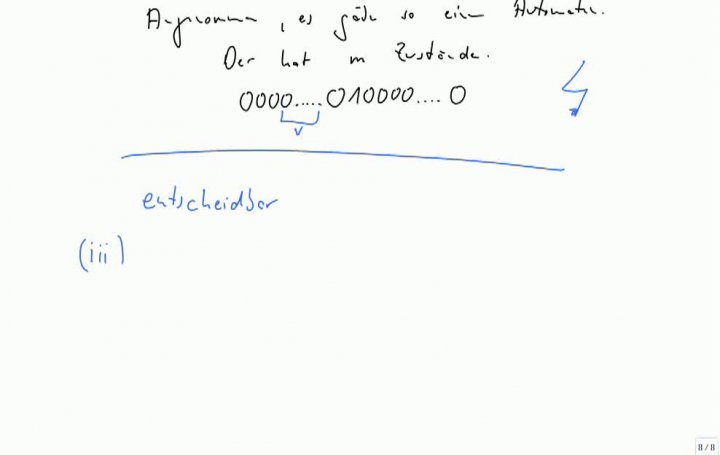 Angenommen, es gäbe so ein Automat.
Der hat m Zustände.
0000.....010000....0
v
entscheidbar
(iii)
8/8